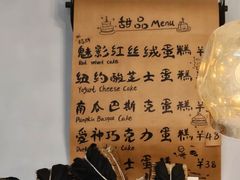 甜品 Menu
招牌
魅影红丝绒蛋糕 ¥
Red velvet cake
纽约酸芝士蛋糕 ¥
Yogurt Cheese Cake
南瓜巴斯克蛋糕
Pumpkin Basque Cake
爱神巧克力蛋糕 ¥48
蛋糕 ¥38